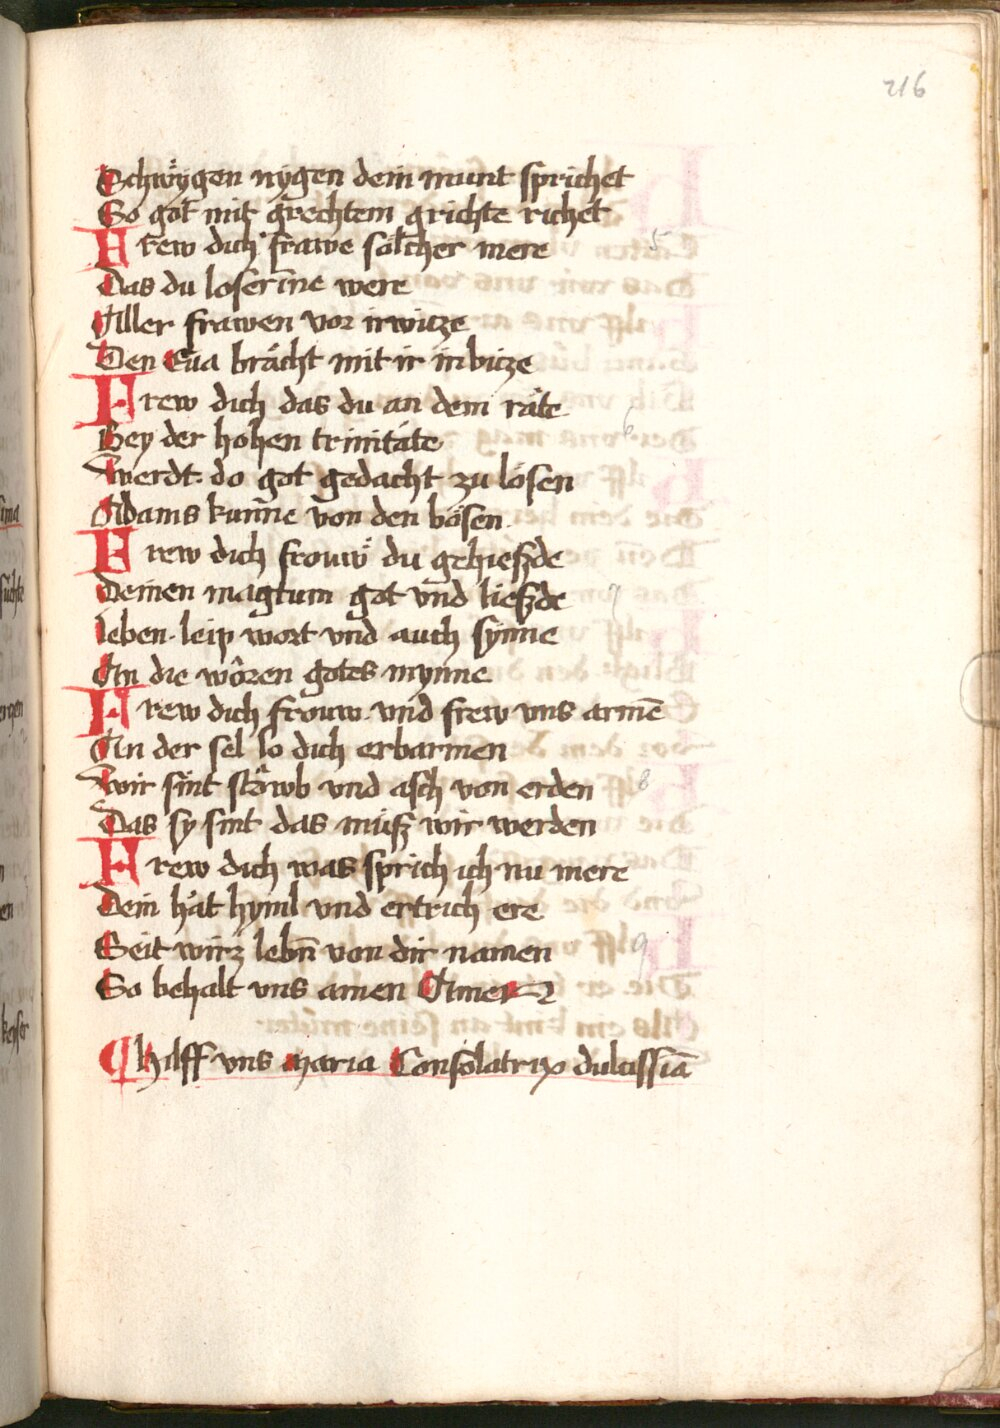 216
Schwÿgen nÿgen dein munt sprichet
So got mit grechtem grichte richet
Frew dich frawe solcher mere
Das du loserīne were
Aller frawen vor irwicze
Den Eua brächt mit ir inbicze
Frew dich das du an dem räte
Bey der hohen trinitäte
Werdt do got gedacht zu lösen
Adams kunne von den bösen
Frew dich frouw du gehieszde
Deinen magtum got vnd lieszde
leben leip wort vnd auch synne
An die wôren gotes mynne
Frew dich frouw vnd frew vns armē
An der sel so dich erbarmen
Wir sint stawb vnd asch von erden
Das sy sint das müsz wir werden
Frew dich was sprich ich nu mere
Dein hat hyml vnd ertrich ere
Seit wirz lebn̄ von dir namen
So behalt vns amen Amen
¶ hilff vns maria Consolatrix dulcissīa